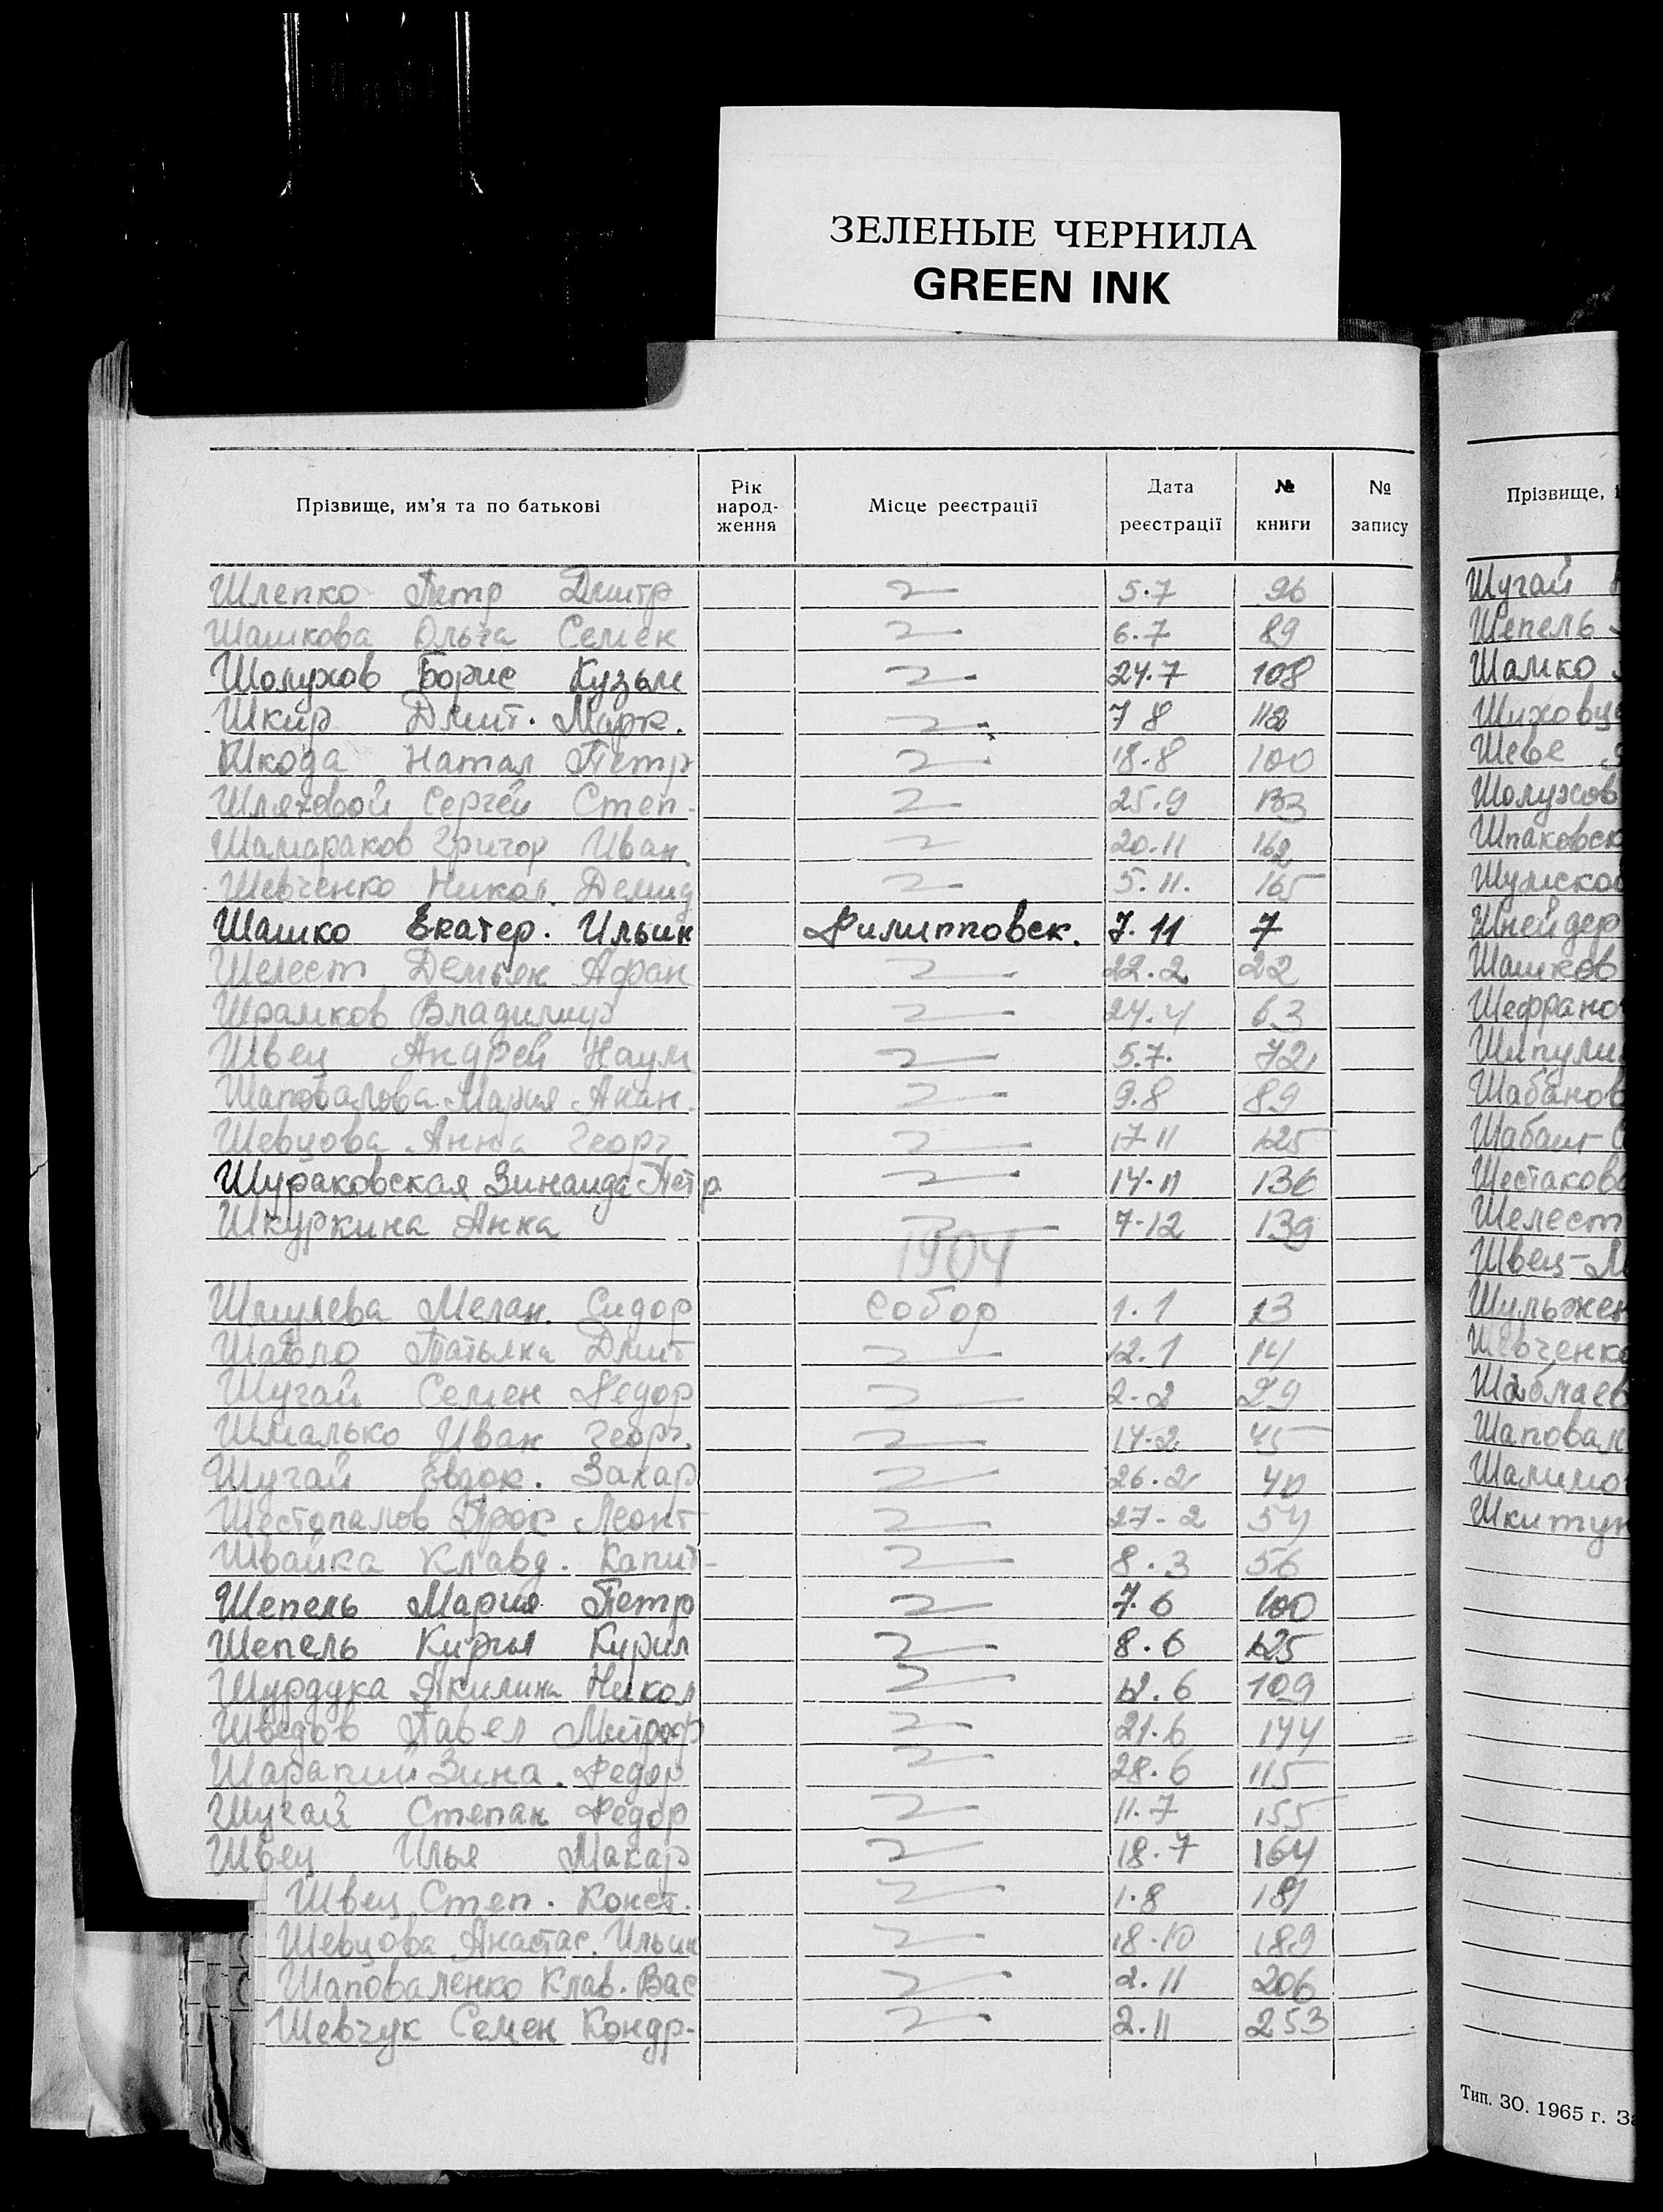 ЗЕЛЕНЫЕ ЧЕРНИЛА
GREEN INK
Прізвище, им'я та по батькові Рік народ-ження Місце реєстрації Дата реєстрації № книги № запису
Шлепко Петр Дмитр 5.7 96
Шашкова Ольга Семен 6.7 89
Шолухов Борис Кузьм 24.7 108
Шкир Дмит. Марк. 7 8 112
Шкода Натал Петр 18.8 100
Шляховой Сергей Степ- 25.9 133
Шамараков Григор Иван. 20.11 162
Шевченко Никол. Демид 5.11. 165
Шашко Екатер. Ильин Филипповск. 7.11 7
Шелест Демьян Афан 22.2 22
Шрамков Владимир 24.4 63
Швец Андрей Наум 5.7. 72
Шаповалова Мария Анан. 9.8 89
Шевцова Анна Георг 17-11 125
Шураковская Зинаида Петр 14-11 136
Шкуркина Анна 7-12 139
1904
Шмулева Мелан. Сидор собор 1.1 13
Шавло Татьяна Дмит 12.1 14
Шугай Семен Федор 2-2 29
Шмалько Иван Георг. 14-2 45
Шугай Евдок. Захар 26.2 40
Шестопалов Прок Леонт 27-2 54
Швайка Клавд. Капит- 8.3 56
Шепель Мария Петр 7.6 100
Шепель Кирил Кирил 8.6 125
Шурдука Акилина Никол 12.6 109
Шведов Павел Митроф 21.6 144
Шарапий Зина. Федор 28.6 115
Шугай Степан Федор 11.7 155
Швец Илья Макар 18.7 164
Швец Степ. Конст. 1.8 181
Шевцова Анастас. Ильин 18-10 189
Шаповаленко Клав. Вас 2.11 206
Шевчук Семен Кондр- 2.11 253
Прізвище,
Шугай
Шепель
Шамко
Шиховц
Шеве
Шолухов
Шпаковск
Шумско
Шнейдер
Шашков
Шефрано
Шипули
Шабанов
Шабаш
Шестаков
Шелест
Швец-М
Шульжен
Шевченко
Шаповал
Шалимо
Шкитун
Тип. ЗО. 1965 г. За